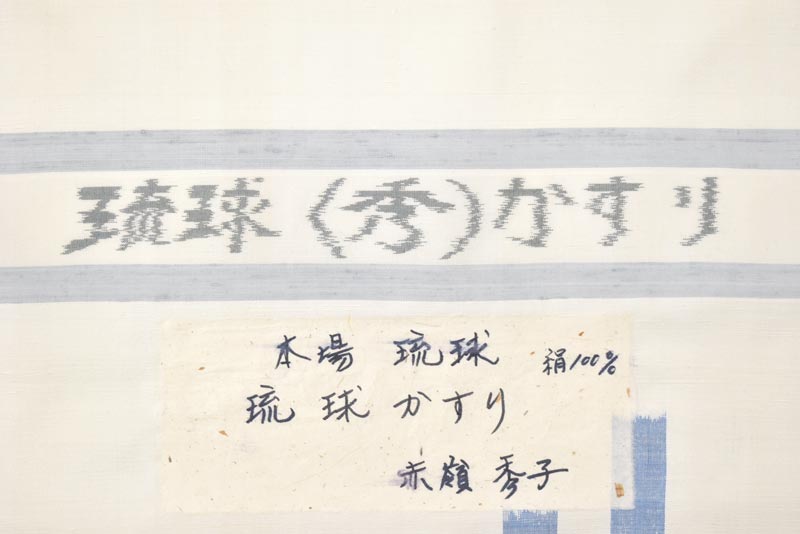 琉球(秀)かすり
本場 琉球 絹100%
琉球かすり
赤嶺 秀子